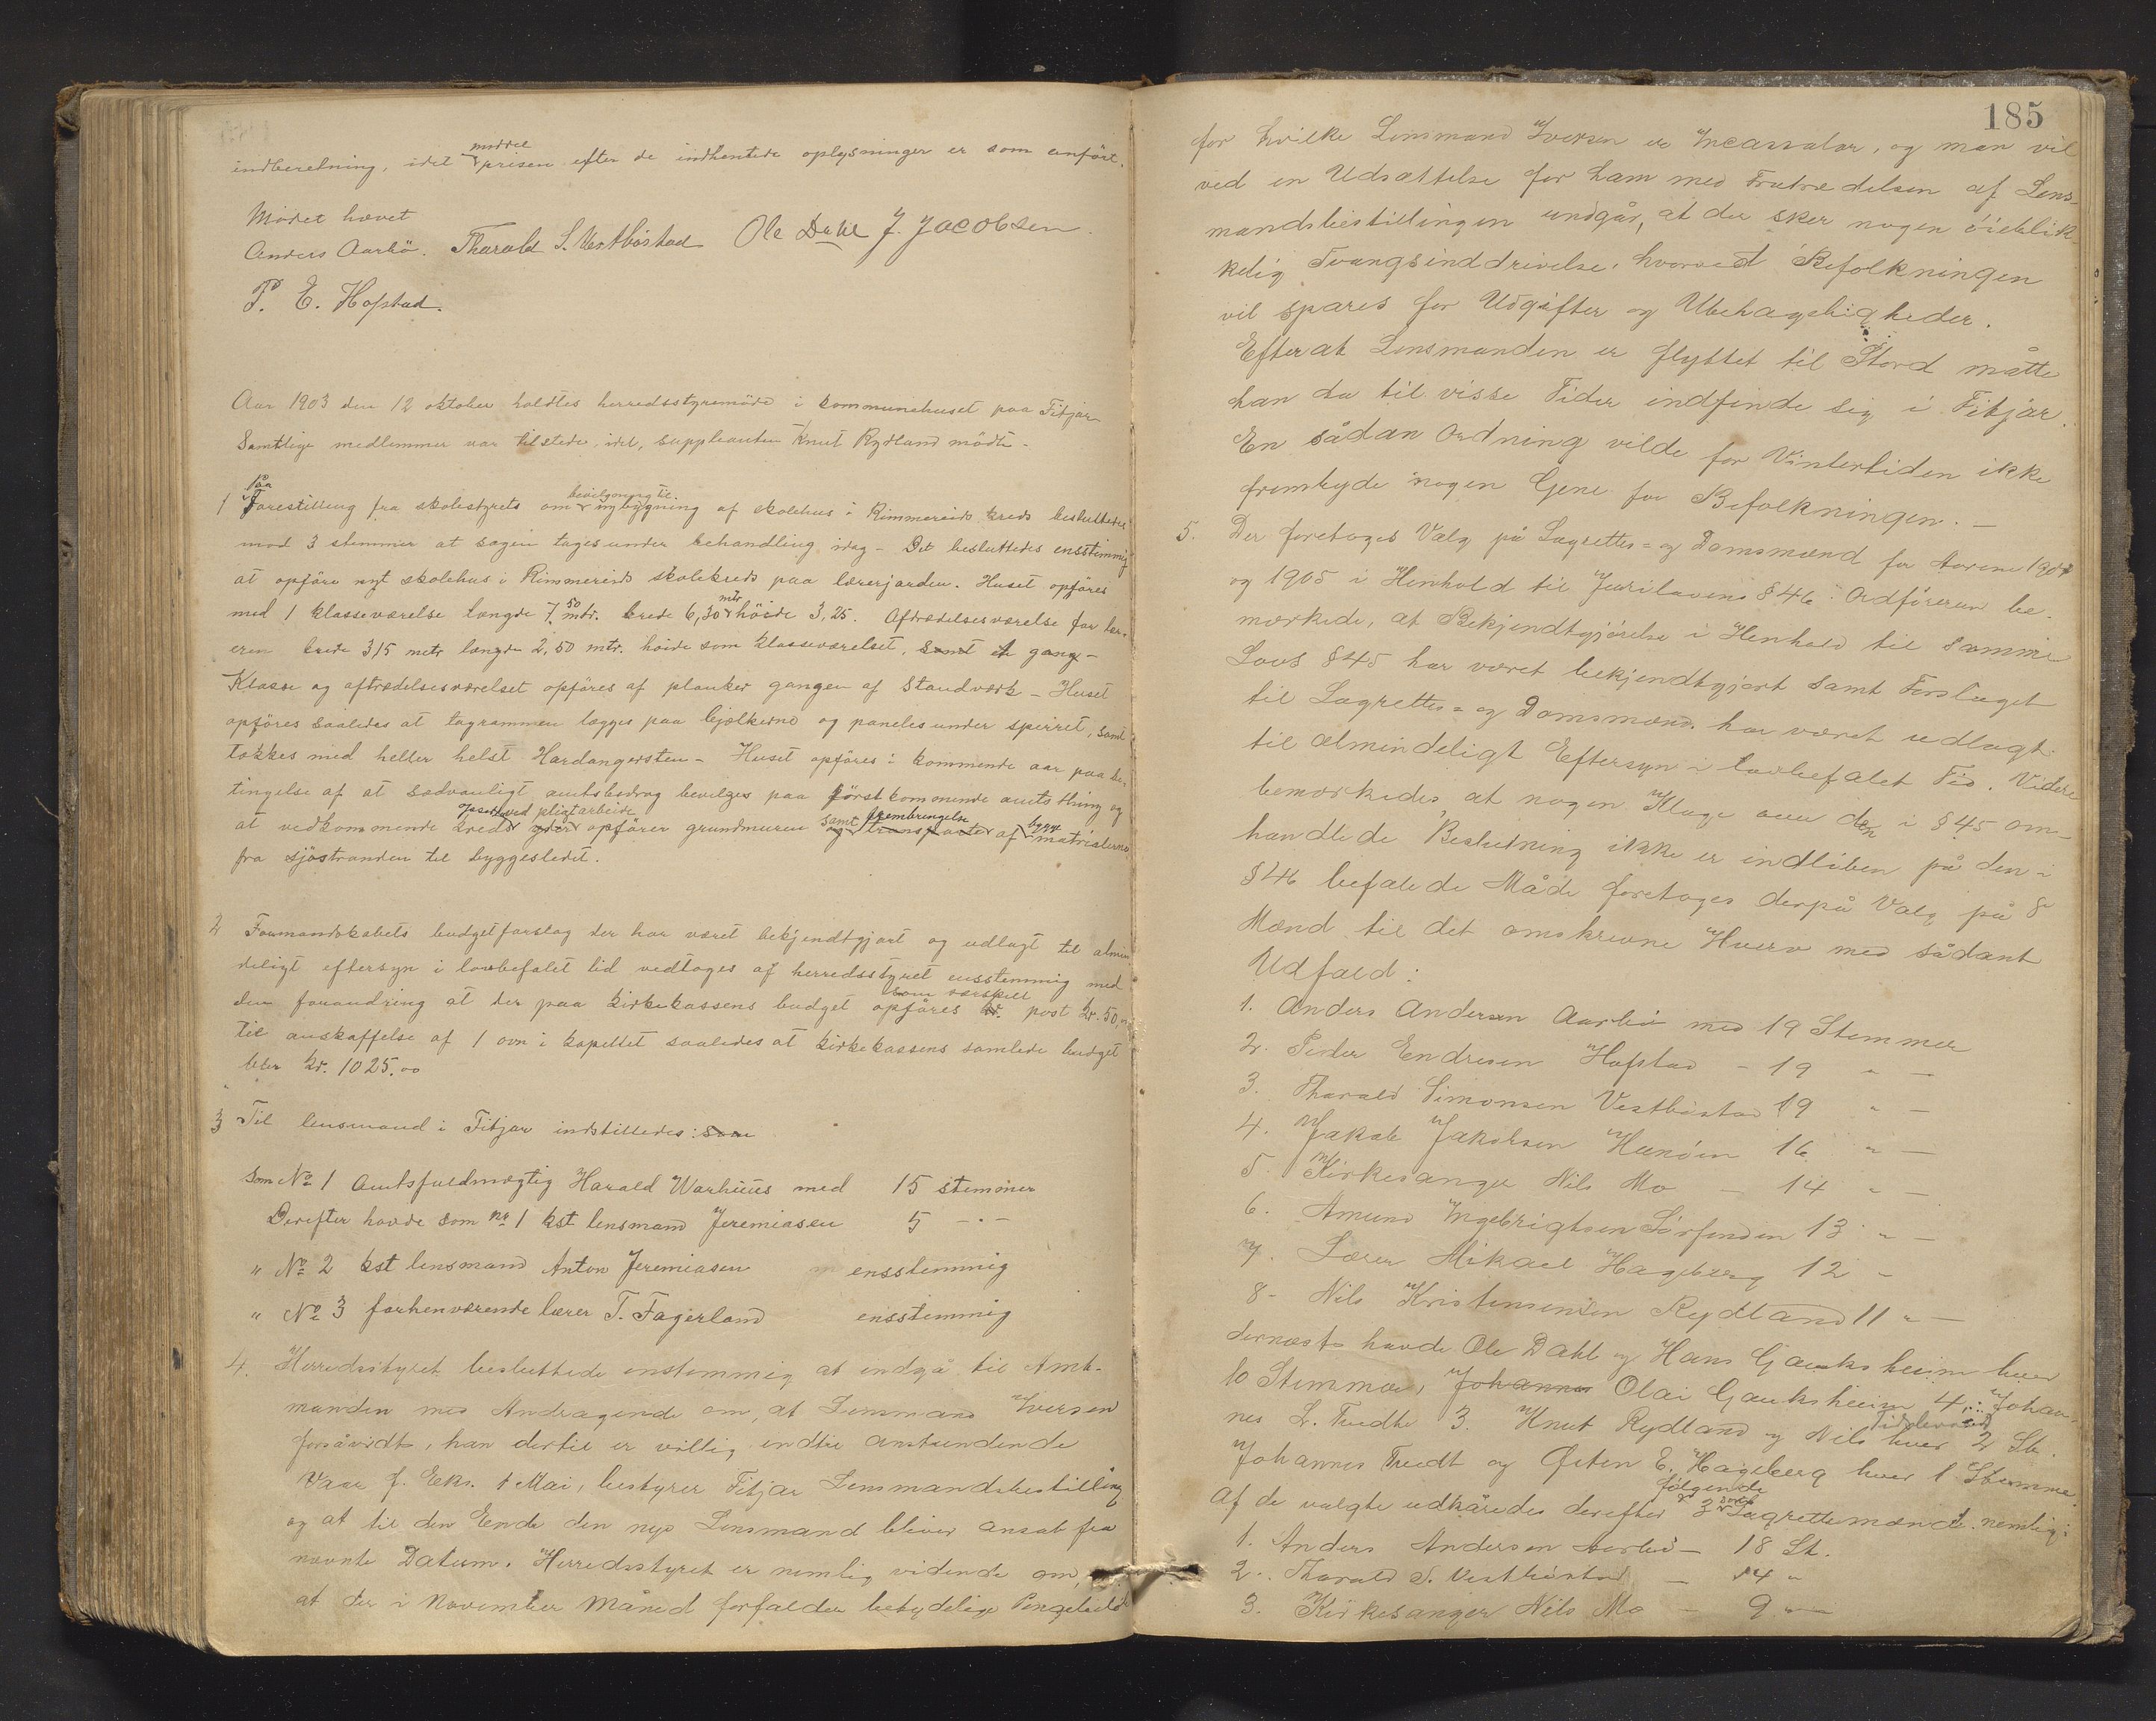 indberetning, idet middelprisen efter de indhentede oplysninger er som anført.
Mødet hævet
Anders Aarbø. Tharald S. Vestbøstad Ole Dahl J. Jacobsen.
P. E. Hofstad.
Aar 1903 den 12 oktober holdtes herredsstyremøde i kommunehuset paa Fitjar
Samtlige medlemmer var tilstede, idet, suppleanten Knut Rydland mødte.
1 Paa Forestilling fra skolestyrets om bevilgning til nybygning af skolehus i Rimmereids kreds besluttedes
mod 3 stemmer at sagen tages under behandling idag - Det besluttedes ensstemmig
at opføre nyt skolehus i Rimmereids skolekreds paa lærerjorden. Huset opføres
med 1 klasseværelse længde 7,50 mtr. brede 6,30 mtr høide 3,25. Aftrædelsesværelse for lær-
eren brede 315 metr længde 2,50 mtr. høide som klasseværelset, samt et gang -
Klasse og aftrædelsesværelset opføres af planker gangen af Standværk - Huset
opføres saaledes at tagrammen lægges paa bjælkerne og paneles under sperret, samt
tækkes med heller helst Hardangersten - Huset opføres i kommende aar paa be-
tingelse af at sædvanligt amtsbidrag bevilges paa førstkommende amtsthing og
at vedkommende kreds ved pligtarbeide opfører grundmuren samt frembringelse af bygge matrialerne
fra sjøstranden til byggestedet.
2 Formandskabets budgetforslag der har været bekjendtgjort og udlagt til almin
deligt eftersyn i lovbefalet tid vedtoges af herredsstyret ensstemmig med
den forandring at der paa kirkekassens budget opføres som særskilt post kr. 50,00
til anskaffelse af 1 ovn i kapellet saaledes at kirkekassens samlede budget
bler kr. 1025.00
3 Til lensmand i Fitjar indstilledes: som
Som No 1 Amtsfuldmægtig Harald Warhuus med 15 stemmer
Derefter havde som nr 1 kst lensmand Jeremiasen 5 - " -
" No 2 kst lensmand Anton Jeremiasen ensstemmig
" No 3 forhenværende lærer T. Fagerland ensstemmig
4. Herredsstyret besluttede enstemmig at indgå til Amt-
manden med Andragende om, at Lensmand Iversen
forsåvidt, han dertil er villig, indtil anstundende
Vaar f. Eks. 1 Mai, bestyrer Fitjar Lensmandsbestilling
og at til den Ende den nye Lensmand bliver ansat fra
nævnte Datum. Herredsstyret er nemlig vidende om,
at der i November Måned forfalder betydelige Pengebeløb
185
for hvilke Lensmand Iversen er Incassator, og man vil
ved en Udsættelse for ham med Fratrædelsen af Lens-
mandsbestillingen undgår, at der sker nogen øieblik-
kelig Tvangsinddrivelse, hvorved Befolkningen
vil spares for Udgifter og Ubehageligheder.
Efterat Lensmanden er flyttet til Stord måtte
han da til visse Tider indfinde sig i Fitjar.
En sådan Ordning vilde for Vintertiden ikke
frembyde nogen Gene for Befolkningen. -
5. Der foretoges Valg på Lagrettes= og Domsmænd for Aarene 1904
og 1905 i Henhold til Jurilovens § 46. Ordføreren be-
mærkede, at Bekjendtgjørelse i Henhold til samme
Lovs § 45 har været bekjendtgjort samt Forslaget
til Lagrettes= og Domsmænd har været udlagt
til almindeligt Eftersyn i lovbefalet Tid. Videre
bemærkedes, at nogen Klage over den i § 45 om-
handlede Beslutning ikke er indløben på den i
§ 46 befalede Måde foretoges derpå Valg på 8
Mænd til det omskrevne Hverv med sådant
Udfald:
1. Anders Andersen Aarbø med 19 Stemmer
2. Peder Endresen Hofstad - 19 " -
3. Tharald Simonsen Vestbøstad 19 " -
4. Jakob Jakobsen Hunøen 16 " -
5. Kirkesanger Nils Mo - 14 " -
6. Amund Ingebrigtsen Sørfonden 13 " -
7. Lærer Mikael Hageberg 12 -
8 - Nils Kristensensen Rydland 11 " -
dernæst havde Ole Dahl og Hans Gauksheim hver
10 Stemmer, Johannes Olai Gauksheim 4, Johan-
nes L. Tredt 3. Knut Rydland og Nils hver 2 St.
Johannes Tredt og Østen E. Hageberg hver 1 Stemme.
Af de valgte udkåredes derefter følgende 3 som Lagrettemænd. nemlig:
1. Anders Andersen Aarbø - 18 St.
2. Tharald S. Vestbøstad - 14 "
3. Kirkesanger Nils Mo - 9 " -